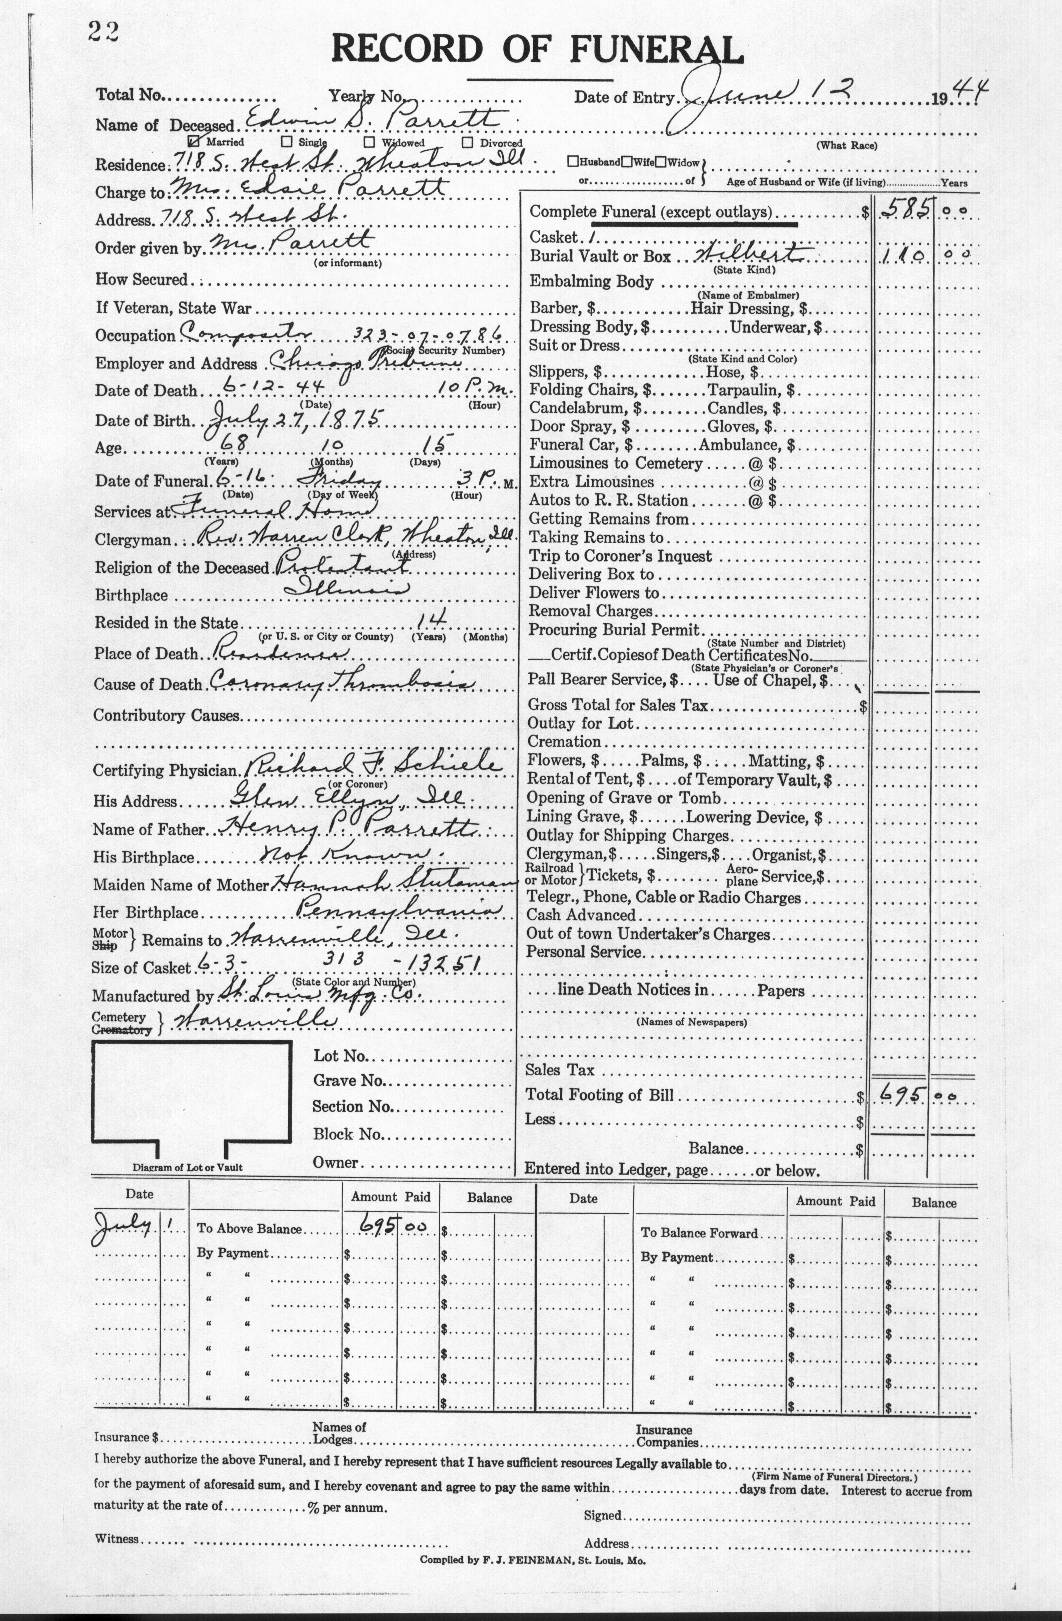 22
RECORD OF FUNERAL
Total No. Yearly No. Date of Entry. June 12 1944
Name of Deceased. Edwin S. Parrett
☑ Married ☐ Single ☐ Widowed ☐ Divorced (What Race)
Residence. 718 S. West St. Wheaton Ill. ☐Husband☐Wife☐Widow
or of Age of Husband or Wife (if living) Years
Charge to. Mrs. Edsie Parrett
Address. 718 S. West St.
Order given by. Mrs. Parrett
(or informant)
How Secured.
If Veteran, State War
Occupation Compositor 323-07-0786
(Social Security Number)
Employer and Address Chicago Tribune
Date of Death. 6-12-44 10 P.m.
(Date) (Hour)
Date of Birth. July 27, 1875
Age. 68 10 15
(Years) (Months) (Days)
Date of Funeral. 6-16. Friday 3 P. M.
(Date) (Day of Week) (Hour)
Services at Funeral Home
Clergyman Rev. Warren Clark, Wheaton, Ill.
(Address)
Religion of the Deceased. Protestant
Birthplace Illinois
Resided in the State. 14
(or U. S. or City or County) (Years) (Months)
Place of Death. Residence
Cause of Death. Coronary Thrombosis
Contributory Causes.
Certifying Physician. Richard F. Schiele
(or Coroner)
His Address Glen Ellyn, Ill.
Name of Father. Henry P. Parrett
His Birthplace Not Known.
Maiden Name of Mother. Hannah Stutsman
Her Birthplace Pennsylvania
Motor
Ship } Remains to Warrenville, Ill.
Size of Casket. 6-3- 313 -13251
(State Color and Number)
Manufactured by St. Louis Mfg. Co.
Cemetery
Crematory } Warrenville
Diagram of Lot or Vault
Lot No.
Grave No.
Section No.
Block No.
Owner
Complete Funeral (except outlays) $ 585 00
Casket.
Burial Vault or Box Wilbert 110 00
(State Kind)
Embalming Body
(Name of Embalmer)
Barber, $ Hair Dressing, $
Dressing Body, $ Underwear, $
Suit or Dress
(State Kind and Color)
Slippers, $ Hose, $
Folding Chairs, $ Tarpaulin, $
Candelabrum, $ Candles, $
Door Spray, $ Gloves, $
Funeral Car, $ Ambulance, $
Limousines to Cemetery @ $
Extra Limousines @ $
Autos to R. R. Station @ $
Getting Remains from
Taking Remains to
Trip to Coroner's Inquest
Delivering Box to
Deliver Flowers to
Removal Charges
Procuring Burial Permit
(State Number and District)
Certif. Copies of Death Certificates No.
(State Physician's or Coroner's
Pall Bearer Service, $ Use of Chapel, $
Gross Total for Sales Tax $
Outlay for Lot
Cremation
Flowers, $ Palms, $ Matting, $
Rental of Tent, $ of Temporary Vault, $
Opening of Grave or Tomb
Lining Grave, $ Lowering Device, $
Outlay for Shipping Charges
Clergyman, $ Singers, $ Organist, $
Railroad or Motor } Tickets, $ Aeroplane Service, $
Telegr., Phone, Cable or Radio Charges
Cash Advanced
Out of town Undertaker's Charges
Personal Service
line Death Notices in Papers
(Names of Newspapers)
Sales Tax
Total Footing of Bill $ 695 00
Less $
Balance $
Entered into Ledger, page or below.
Date Amount Paid Balance Date Amount Paid Balance
July 1 To Above Balance 695 00 $ To Balance Forward $
By Payment $ $ By Payment $ $
" " $ $ " " $ $
" " $ $ " " $ $
" " $ $ " " $ $
" " $ $ " " $ $
" " $ $ " " $ $
" " $ $ " " $ $
Insurance $ Names of Lodges Insurance Companies
I hereby authorize the above Funeral, and I hereby represent that I have sufficient resources Legally available to
(Firm Name of Funeral Directors.)
for the payment of aforesaid sum, and I hereby covenant and agree to pay the same within days from date. Interest to accrue from
maturity at the rate of % per annum. Signed
Witness Address
Compiled by F. J. FEINEMAN, St. Louis, Mo.